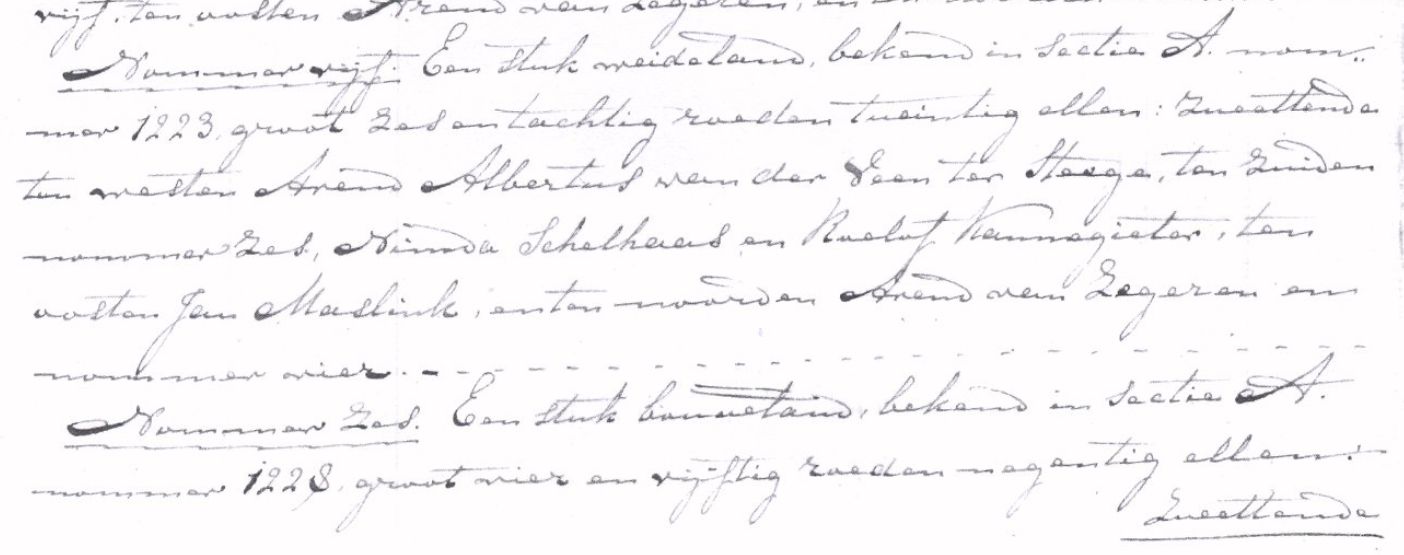 vijf, ten oosten Arend van Zegeren, en ten noorden
Nommer vijf. Een stuk weideland, bekend in sectie A. nom-
mer 1223, groot zes en tachtig roeden twintig ellen: zwettende
ten westen Arend Albertus van der Veen ter Steege, ten zuiden
nommer zes, Schelhaas en Roelof Kannegieter, ten
oosten Jan Maslink, en ten noorden Arend van Zegeren en
nommer vier. - - - - - - - - - - - - - - - - - - - -
Nommer zes. Een stuk bouwland, bekend in sectie A.
nommer 1228, groot vier en vijftig roeden negentig ellen:
zwettende